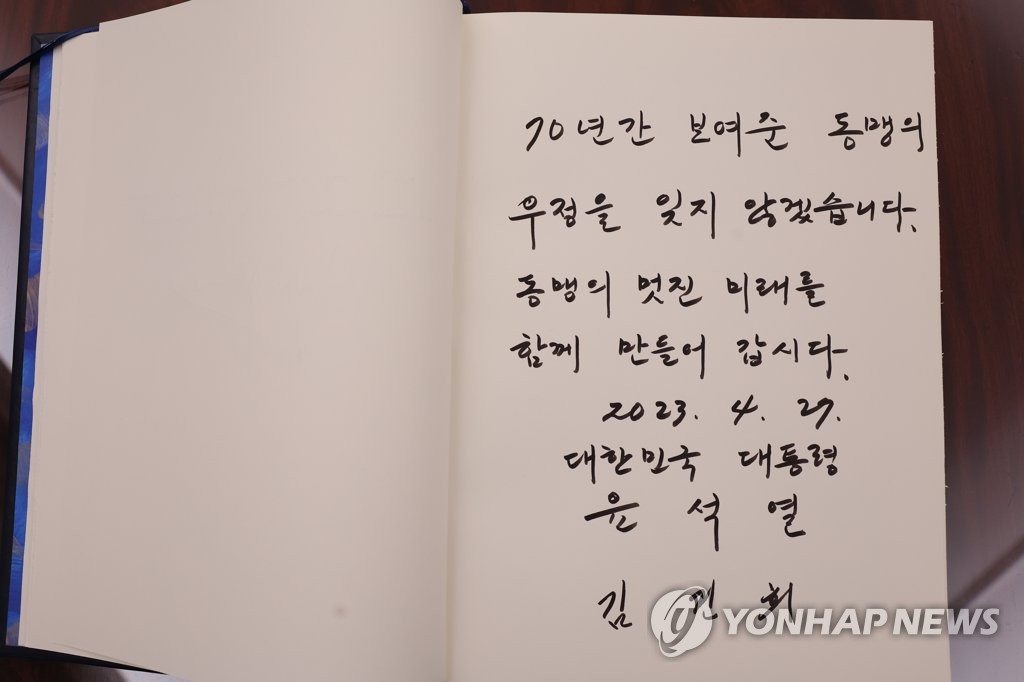 70년간 보여준 동맹의
우정을 잊지 않겠습니다.
동맹의 멋진 미래를
함께 만들어 갑시다.
2023. 4. 27.
대한민국 대통령
윤 석 열
김
YONHAP NEWS